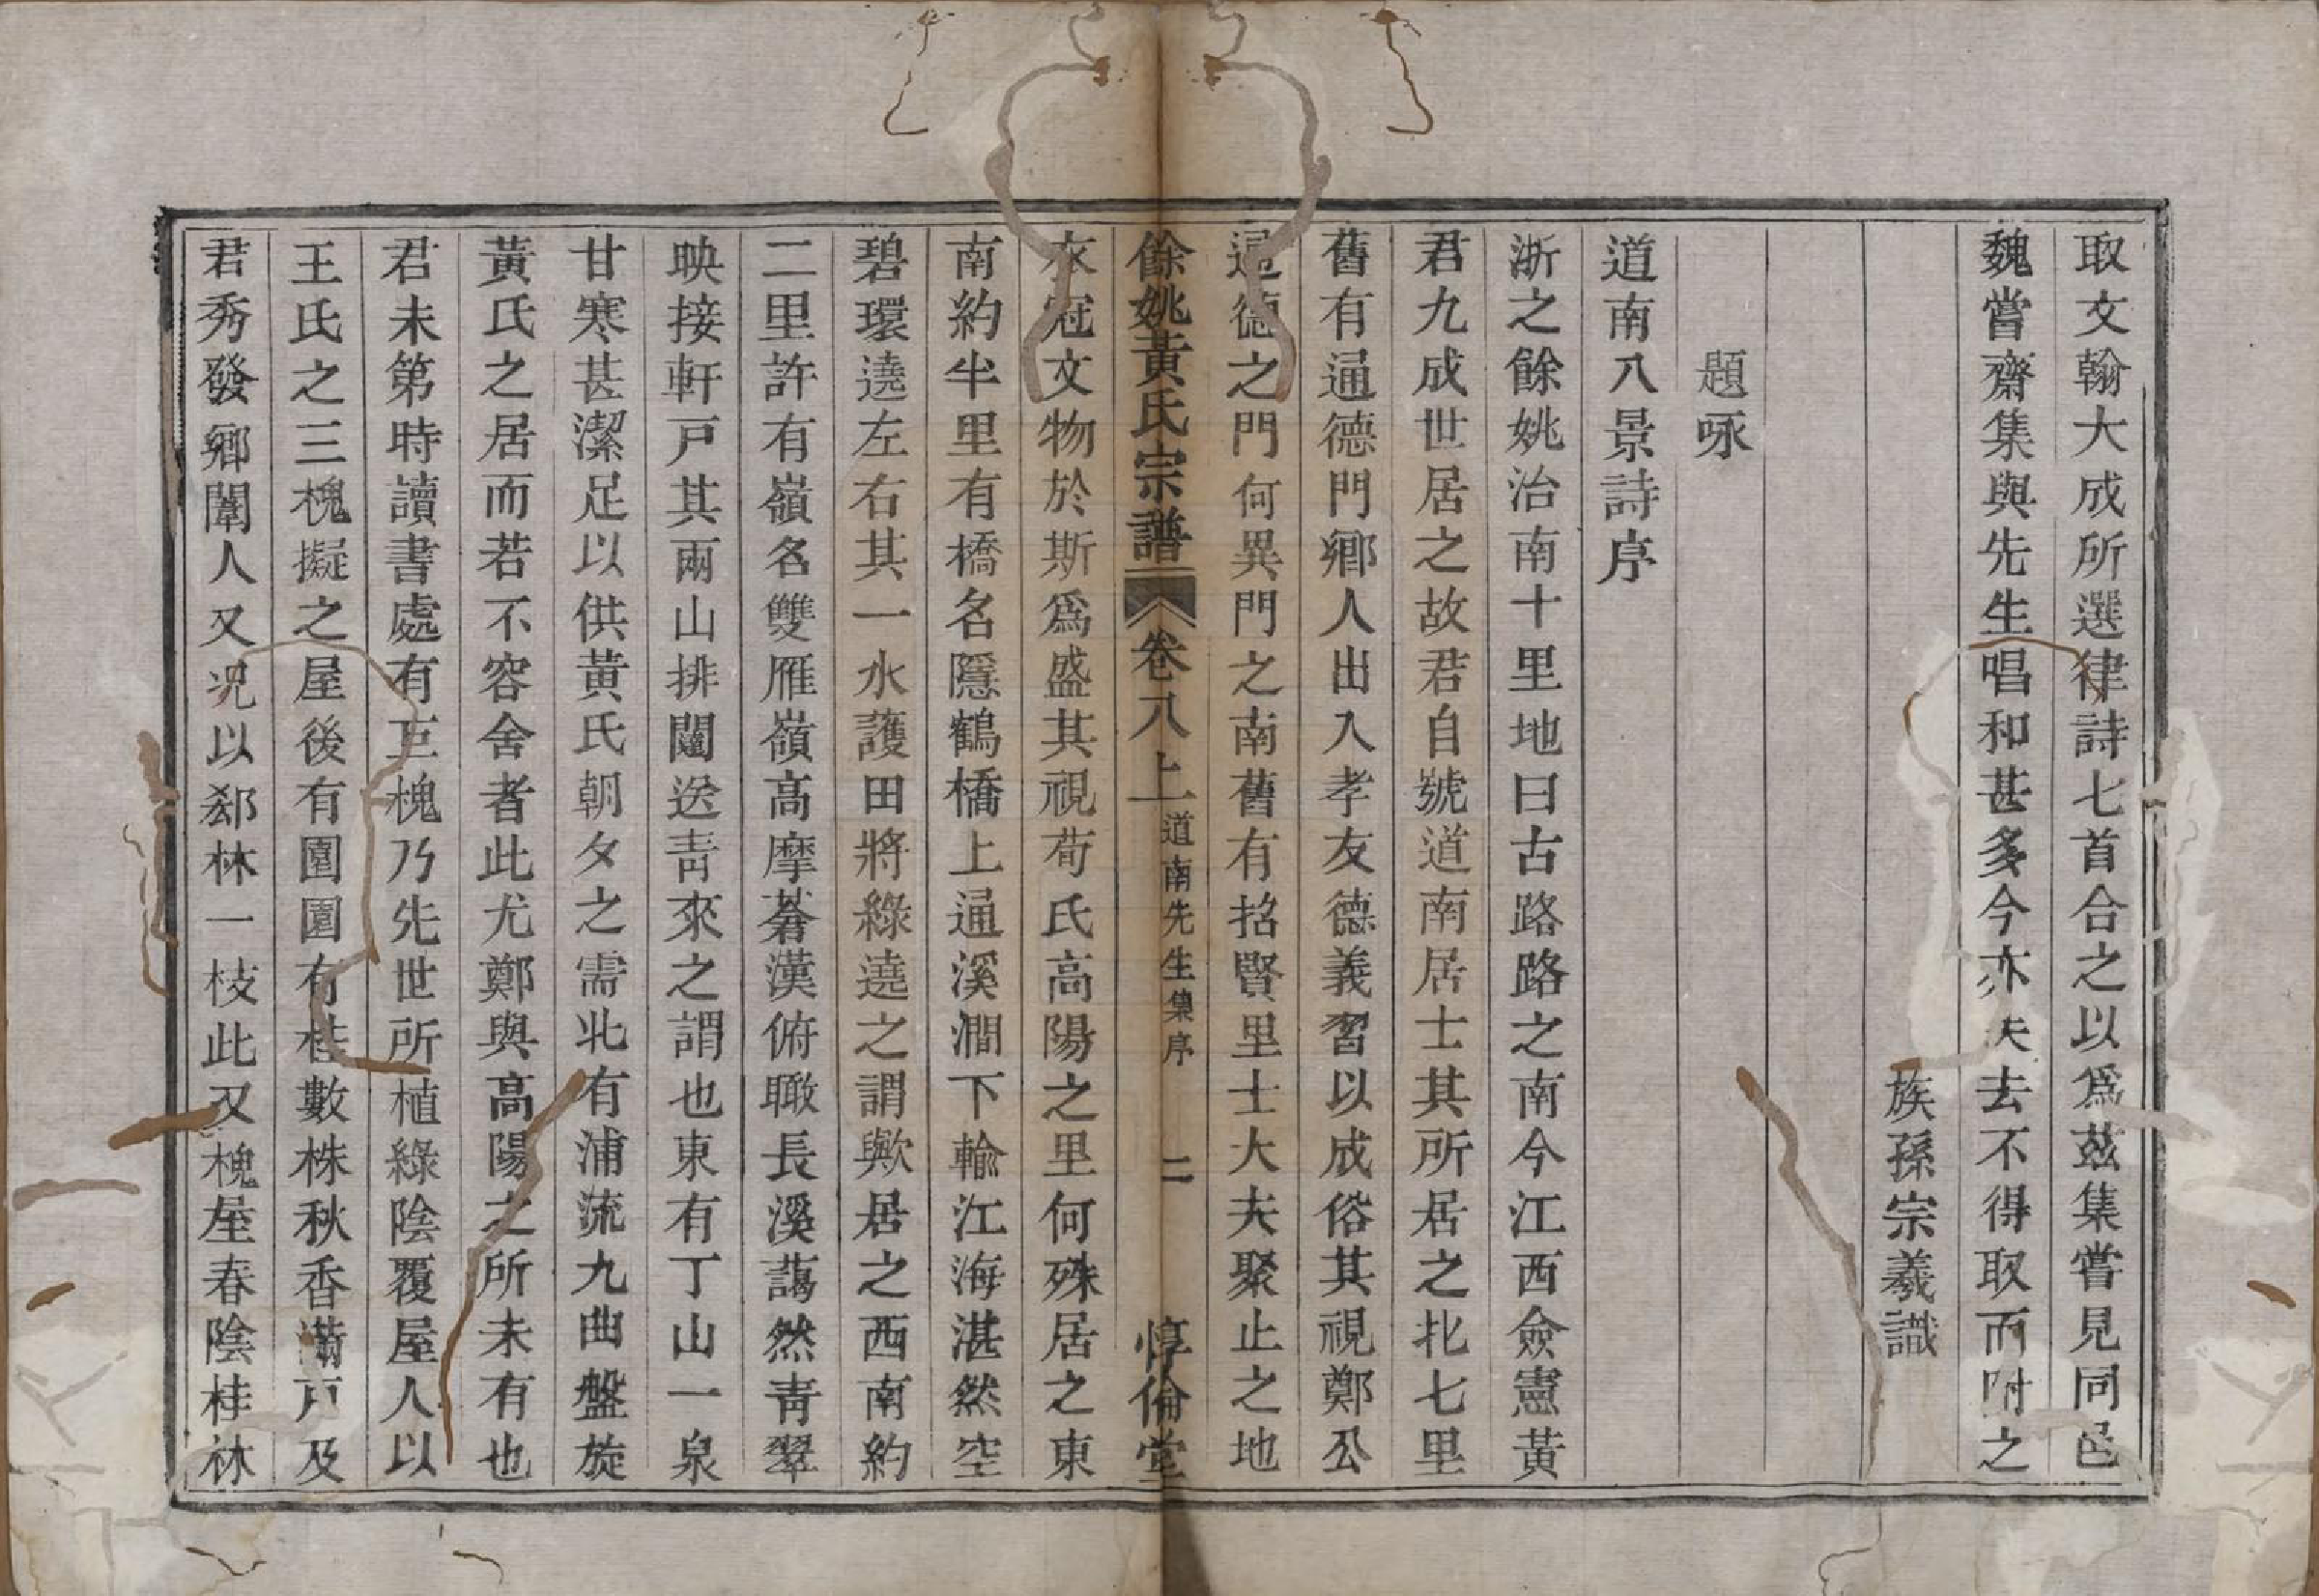 取文翰大成所選律詩七首合之以爲茲集嘗見同邑
魏嘗齋集與先生唱和甚多今亦失去不得取而附之
族孫宗羲識
題咏
道南八景詩序
浙之餘姚治南十里地曰古路路之南今江西僉憲黃
君九成世居之故君自號道南居士其所居之北七里
舊有通德門鄉人出入孝友德義習以成俗其視鄭公
通德之門何異門之南舊有招賢里士大夫聚止之地
餘姚黃氏宗譜 卷八上 道南先生集序 二 惇倫堂
衣冠文物於斯爲盛其視荀氏高陽之里何殊居之東
南約半里有橋名隱鶴橋上通溪澗下輸江海湛然空
碧環遶左右其一水護田將綠遶之謂歟居之西南約
二里許有嶺名雙雁嶺高摩碧漢俯瞰長溪藹然青翠
映接軒戸其兩山排闥送青來之謂也東有丁山一泉
甘寒甚潔足以供黃氏朝夕之需北有浦流九曲盤旋
黃氏之居而若不容舍者此尤鄭與高陽之所未有也
君未第時讀書處有巨槐乃先世所植綠陰覆屋人以
王氏之三槐擬之屋後有園園有桂數株秋香滿戸及
君秀發鄉闈人又况以郄林一枝此又槐屋春陰桂林